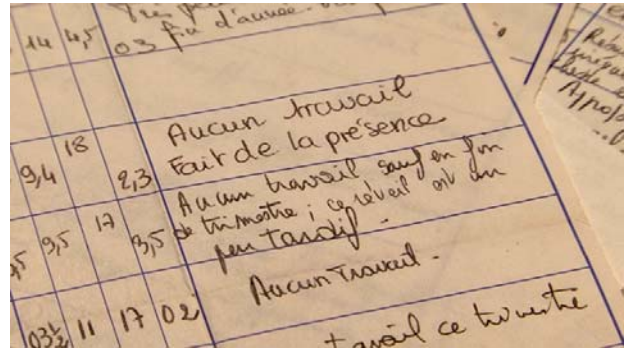 14 4,5 03 fin d'année
18 Aucun travail
9,4 2,3 Fait de la présence
Aucun travail sauf en fin
9,5 17 3,5 de trimestre ; ce réveil est un
peu tardif.
03½ 11 17 02 Aucun Travail.
travail ce trimestre